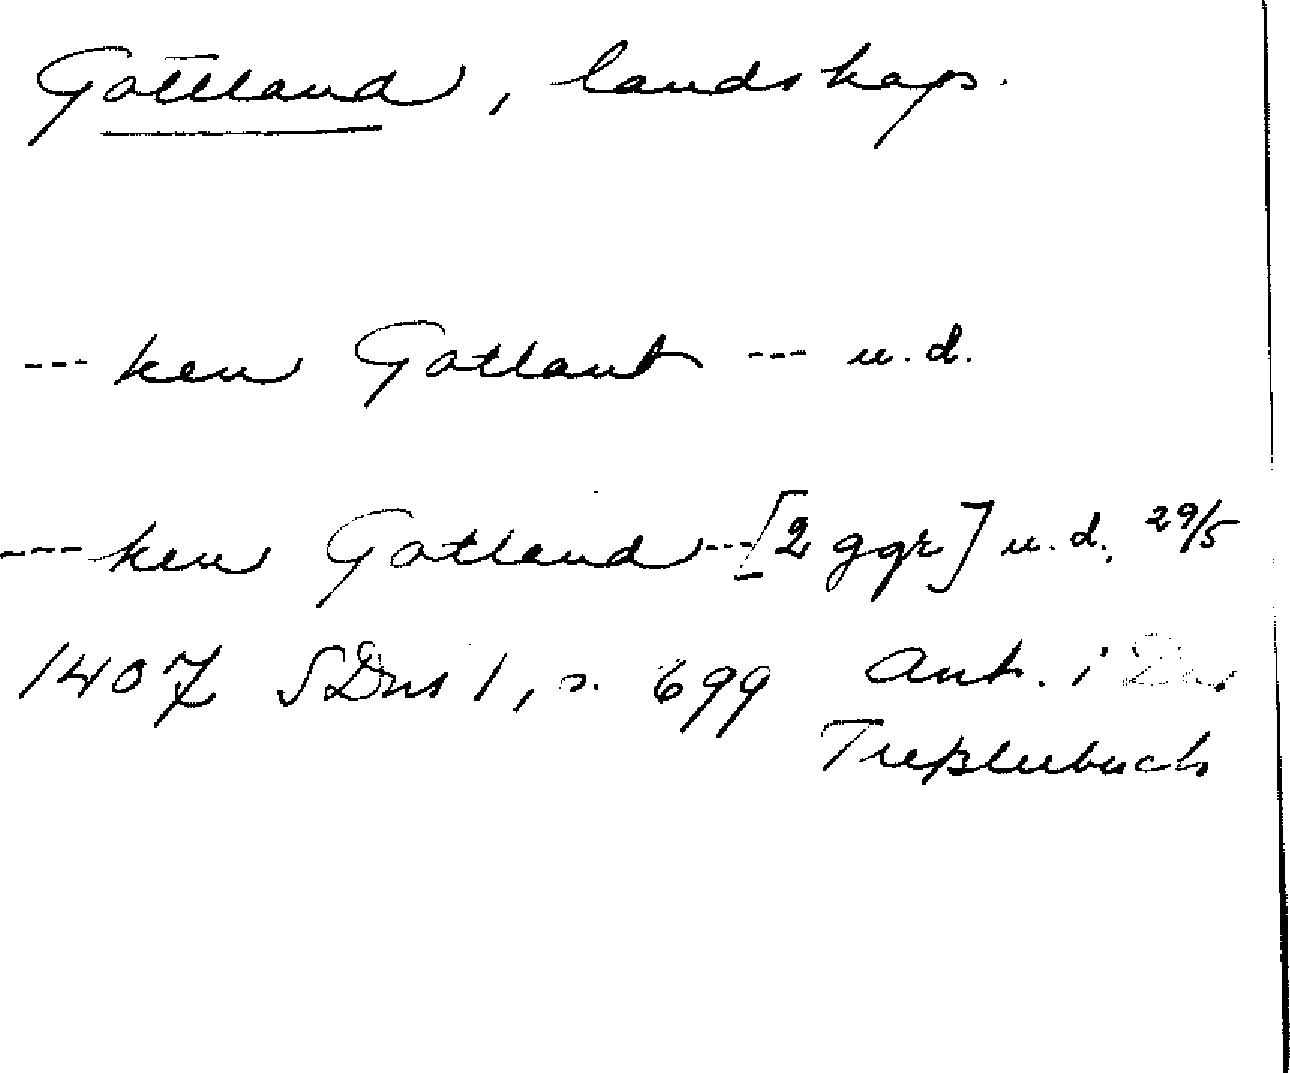 Gottland, landskap.
--- ken Gotlant --- u.d.
--- ken Gotland --- [2 ggr] u.d. 29/5
1407 SDns 1, s. 699 Ant. i
Treßlerbuch